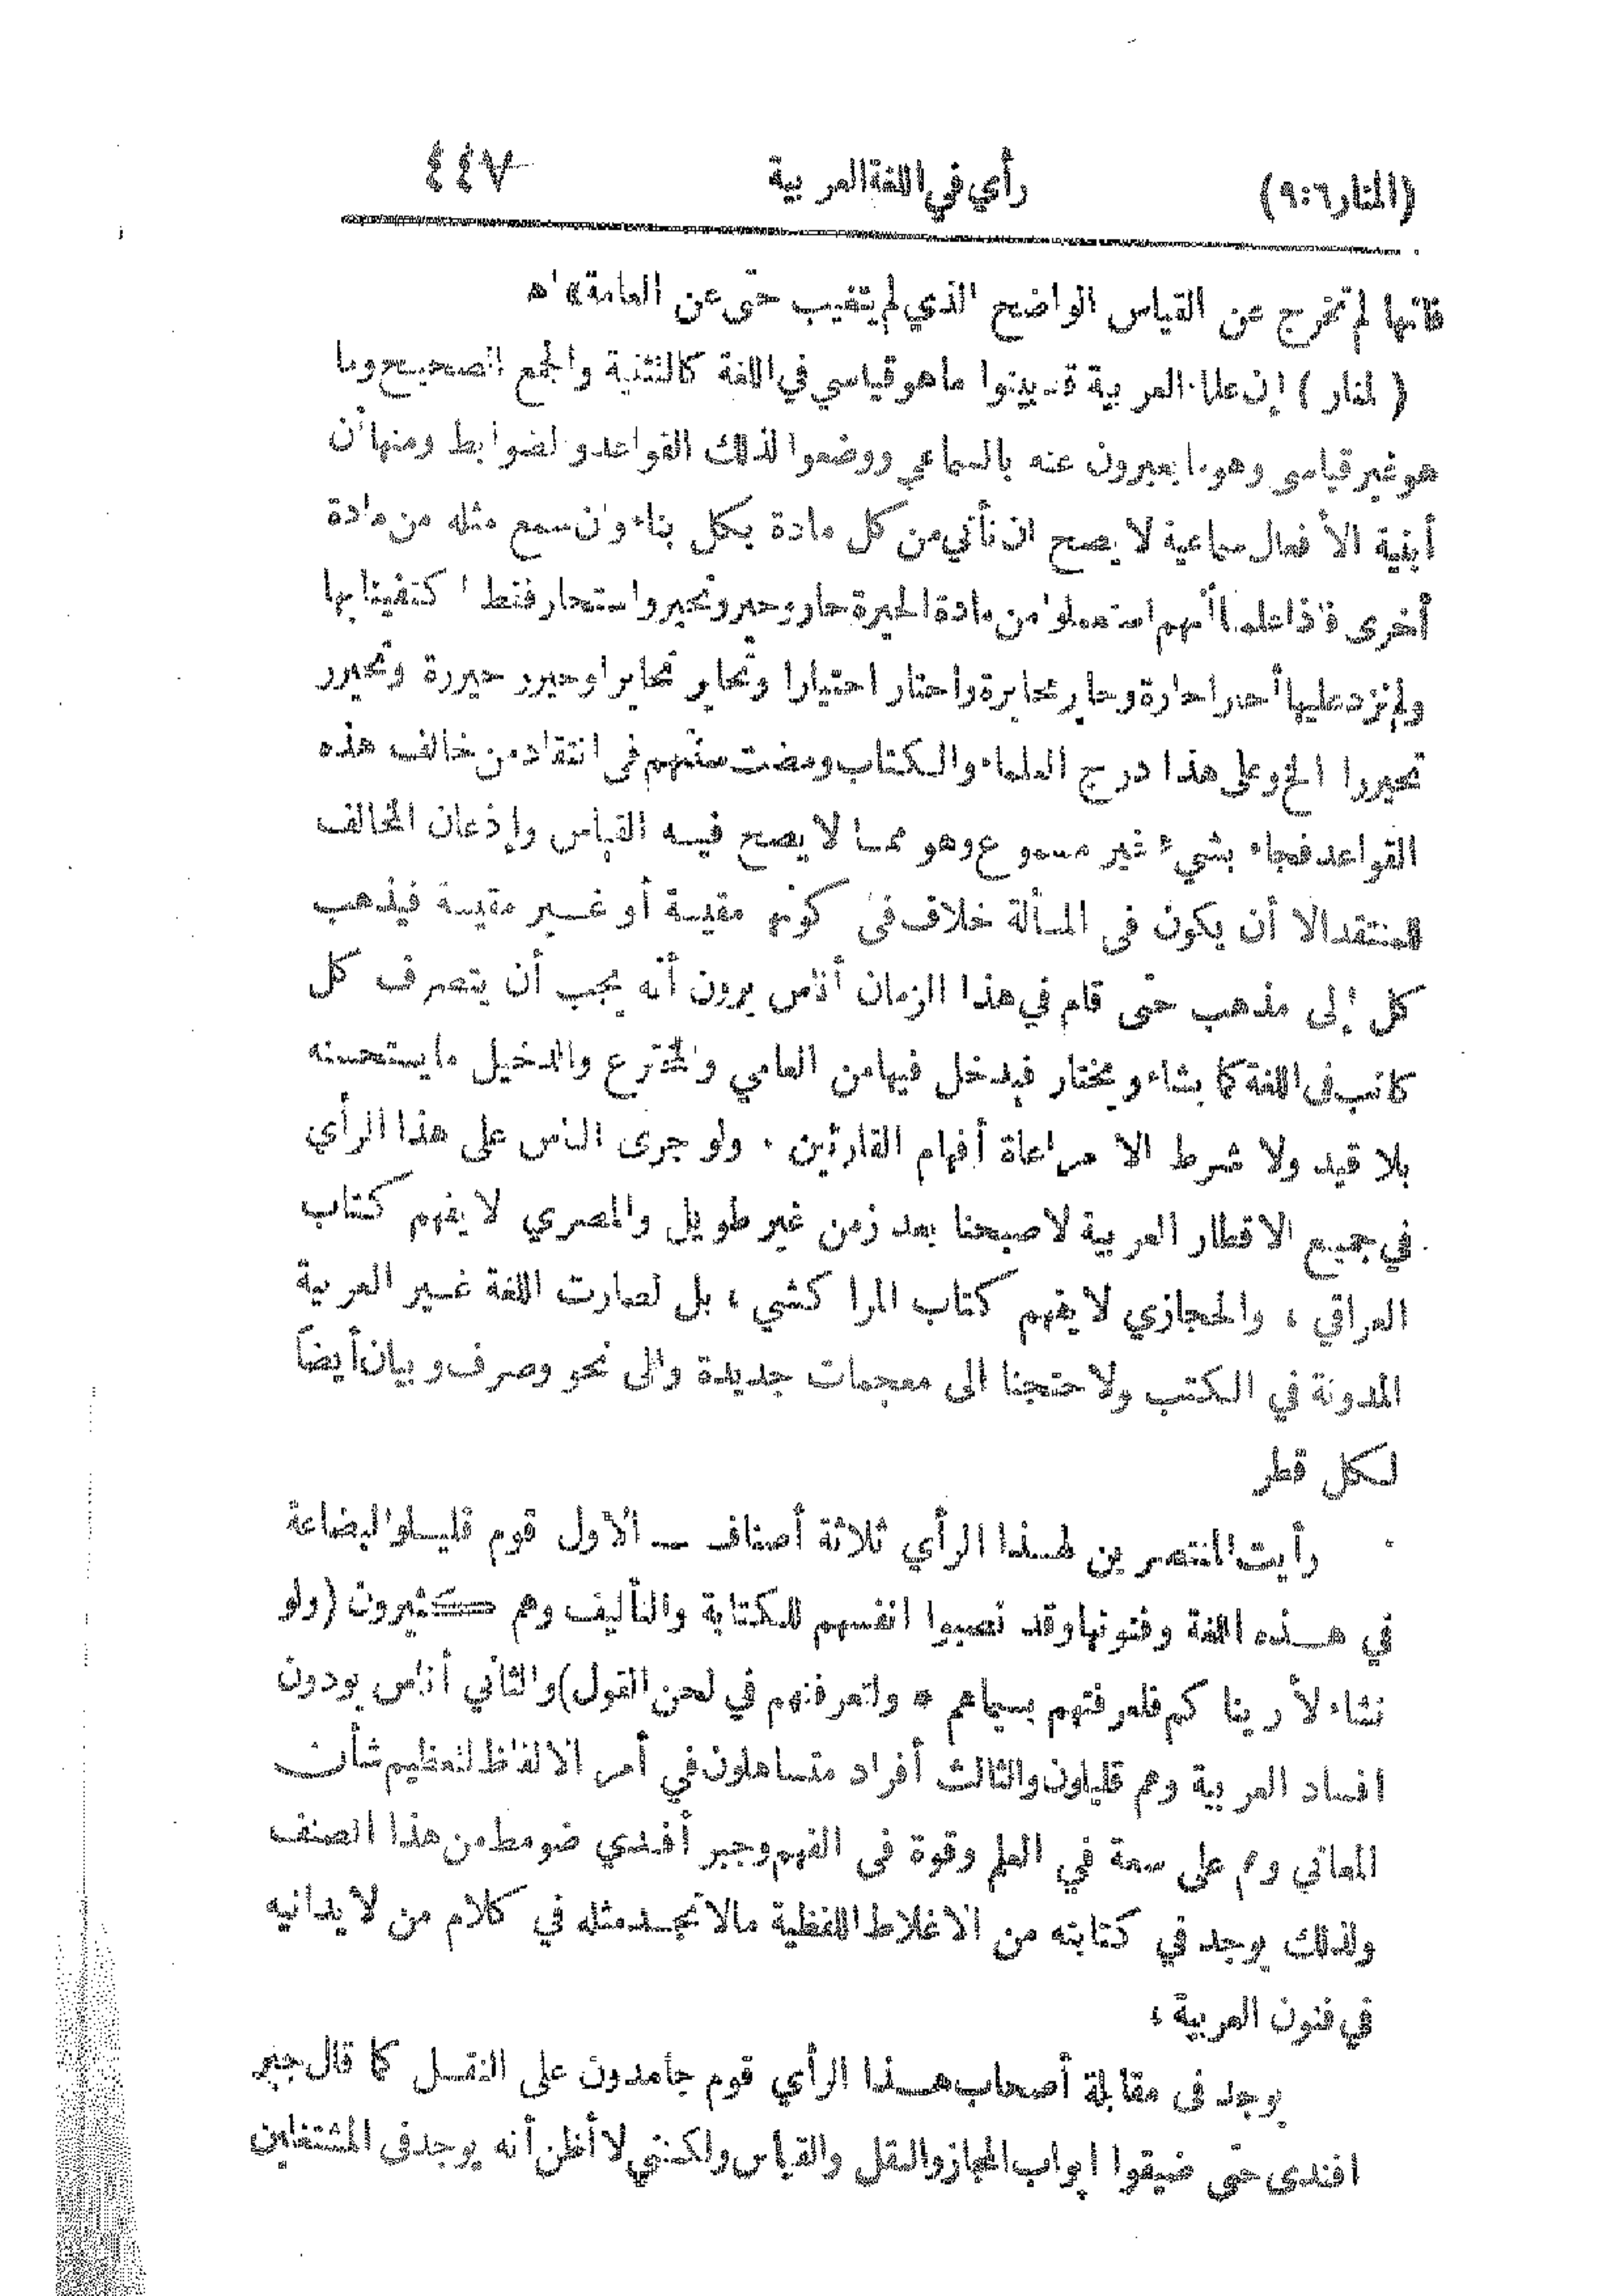 (المنار ٩:٦) رأي في اللغة العربية ٤٤٧
فانها لم تخرج عن القياس الواضح الذي لم يتغيب حتى عن العامة» اه
(المنار) إن علماء العربية قد بينوا ما هو قياسي في اللغة كالتثنية والجمع الصحيح وما
هو غير قياسي وهو ما يعبرون عنه بالسماعي ووضعوا لذلك القواعد والضوابط ومنها أن
أبنية الأفعال سماعية لا يصح ان نأتي من كل مادة بكل بناء وان سمع مثله من مادة
أخرى فاذا علمنا أنهم استعملوا من مادة الحيرة حار وحير وتحير واستحار فقط اكتفينا بها
ولم نزد عليها أحار احارة وحاير محايرة واحتار احتيارا وتحاير تحايرا وحيرر حيررة وتحيرر
تحيررا الخ وعلى هذا درج العلماء والكتاب ومضت سنتهم في انتقاد من خالف هذه
القواعد فجاء بشيء غير مسموع وهو مما لا يصح فيه القياس وإذعان المخالف
للمنتقد الا أن يكون في المسألة خلاف في كونها مقيسة أو غير مقيسة فيذهب
كل إلى مذهب حتى قام في هذا الزمان أناس يرون أنه يجب أن يتصرف كل
كاتب في اللغة كما يشاء ويختار فيدخل فيها من العامي والمخترع والدخيل ما يستحسنه
بلا قيد ولا شرط الا مراعاة أفهام القارئين . ولو جرى الناس على هذا الرأي
في جميع الاقطار العربية لاصبحنا بعد زمن غير طويل والمصري لا يفهم كتاب
العراقي ، والحجازي لا يفهم كتاب المراكشي ، بل لصارت اللغة غير العربية
المدونة في الكتب ولاحتجنا الى معجمات جديدة والى نحو وصرف وبيان أيضاً
لكل قطر
رأيت المنتصرين لهذا الرأي ثلاثة أصناف ــ الاول قوم قليلو البضاعة
في هذه اللغة وفنونها وقد نصبوا انفسهم للكتابة والتأليف وهم كثيرون (ولو
نشاء لأريناكم فلعرفتهم بسيماهم * ولتعرفنهم في لحن القول) والثاني أناس يودون
افساد العربية وهم قليلون والثالث أفراد متساهلون في أمر الالفاظ لتعظيم شأن
المعاني وهم على سعة في العلم وقوة في الفهم وجبر أفندي ضومط من هذا الصنف
ولذلك يوجد في كتابته من الاغلاط اللفظية مالا تجد مثله في كلام من لا يدانيه
في فنون العربية ،
يوجد في مقابلة أصحاب هذا الرأي قوم جامدون على النقل كما قال جبر
افندى حتى ضيقوا ابواب المجاز والنقل والقياس ولكنني لا أظن أنه يوجد في المشتغلين